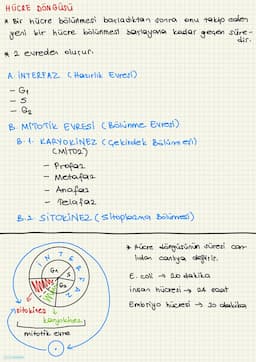 HÜCRE DÖNGÜSÜ
* Bir hücre bölünmesi başladıktan sonra onu takip eden
yeni bir hücre bölünmesi başlayana kadar geçen süre-
dir.
* 2 evreden oluşur.
A. INTERFAZ (Hazırlık Evresi)
- G1
- S
- G2
B. MİTOTİK EVRESİ (Bölünme Evresi)
B.1. KARYOKİNEZ (Çekirdek Bölünmesi)
(MİTOZ)
- Profaz
- Metafaz
- Anafaz
- Telofaz
B.2 SİTOKİNEZ (Sitoplazma Bölünmesi)
INTERFAZ
G1
S
G2
sitokinez
karyokinez
mitotik evre
* Hücre döngüsünün süresi can-
lıdan canlıya değişir.
E. coli → 20 dakika
insan hücresi → 24 saat
Embriyo hücresi → 30 dakika